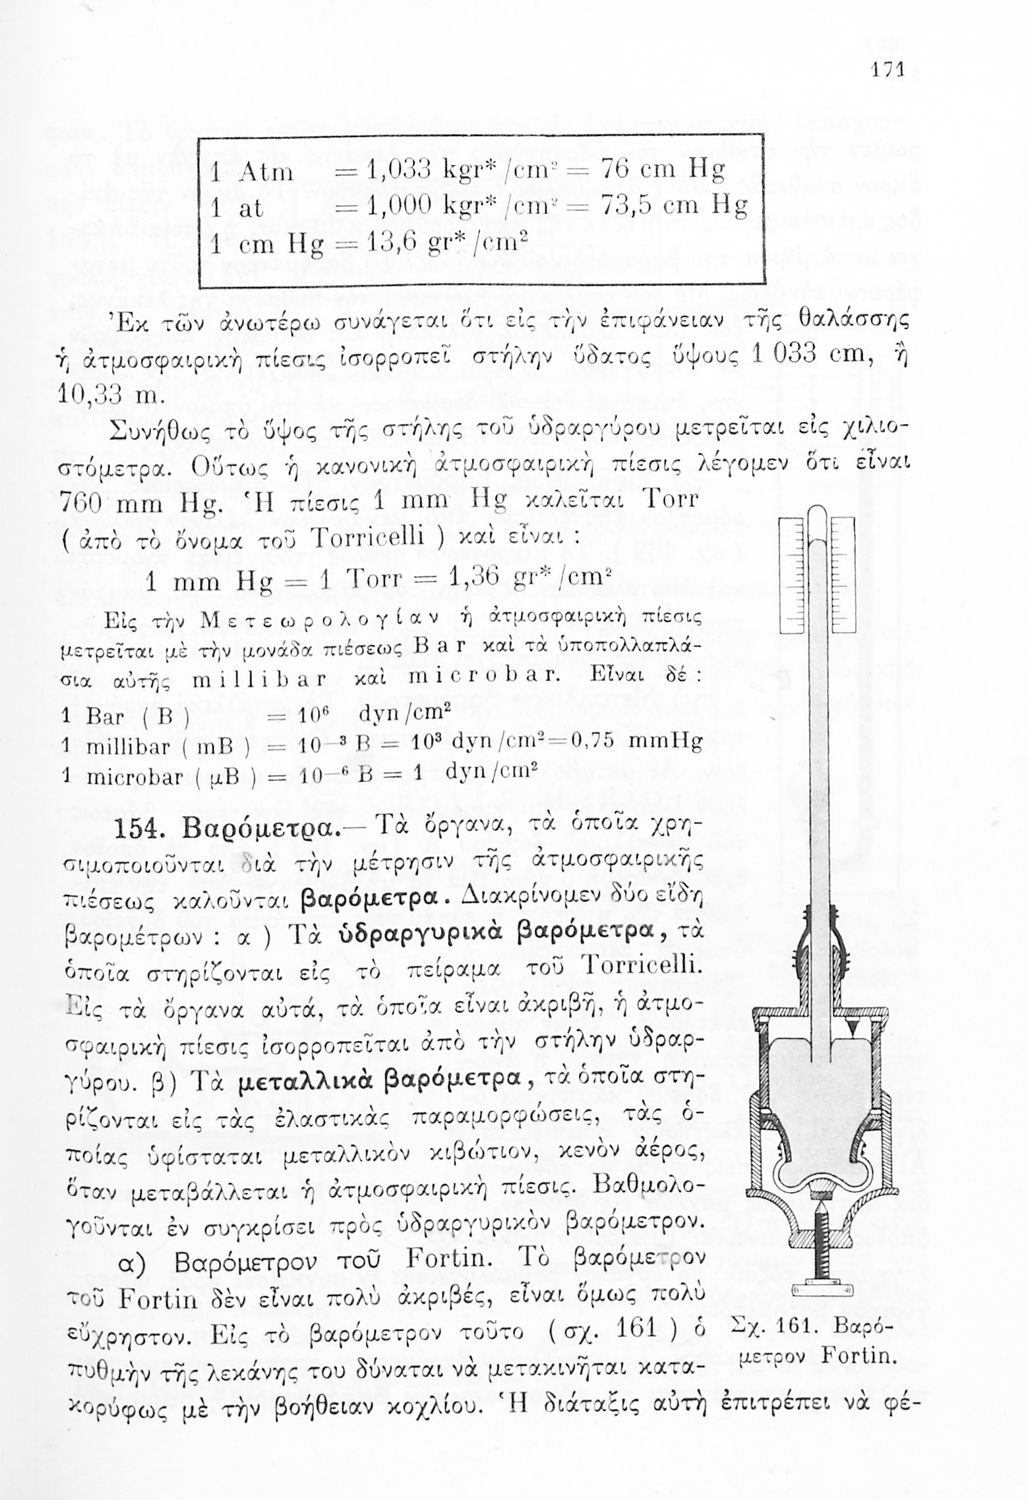 171
1 Atm = 1,033 kgr*/cm² = 76 cm Hg
1 at = 1,000 kgr*/cm² = 73,5 cm Hg
1 cm Hg = 13,6 gr*/cm²
Ἐκ τῶν ἀνωτέρω συνάγεται ὅτι εἰς τὴν ἐπιφάνειαν τῆς θαλάσσης
ἡ ἀτμοσφαιρικὴ πίεσις ἰσορροπεῖ στήλην ὕδατος ὕψους 1 033 cm, ἢ
10,33 m.
Συνήθως τὸ ὕψος τῆς στήλης τοῦ ὑδραργύρου μετρεῖται εἰς χιλιο-
στόμετρα. Οὕτως ἡ κανονικὴ ἀτμοσφαιρικὴ πίεσις λέγομεν ὅτι εἶναι
760 mm Hg. Ἡ πίεσις 1 mm Hg καλεῖται Torr
( ἀπὸ τὸ ὄνομα τοῦ Torricelli ) καὶ εἶναι :
1 mm Hg = 1 Torr = 1,36 gr*/cm²
Εἰς τὴν Μετεωρολογίαν ἡ ἀτμοσφαιρικὴ πίεσις
μετρεῖται μὲ τὴν μονάδα πιέσεως Bar καὶ τὰ ὑποπολλαπλά-
σια αὐτῆς millibar καὶ microbar. Εἶναι δέ :
1 Bar ( B ) = 10⁶ dyn/cm²
1 millibar ( mB ) = 10—³ B = 10³ dyn/cm²=0,75 mmHg
1 microbar ( μB ) = 10—⁶ B = 1 dyn/cm²
154. Βαρόμετρα.— Τὰ ὄργανα, τὰ ὁποῖα χρη-
σιμοποιοῦνται διὰ τὴν μέτρησιν τῆς ἀτμοσφαιρικῆς
πιέσεως καλοῦνται βαρόμετρα. Διακρίνομεν δύο εἴδη
βαρομέτρων : α ) Τὰ ὑδραργυρικὰ βαρόμετρα, τὰ
ὁποῖα στηρίζονται εἰς τὸ πείραμα τοῦ Torricelli.
Εἰς τὰ ὄργανα αὐτά, τὰ ὁποῖα εἶναι ἀκριβῆ, ἡ ἀτμο-
σφαιρικὴ πίεσις ἰσορροπεῖται ἀπὸ τὴν στήλην ὑδραρ-
γύρου. β) Τὰ μεταλλικὰ βαρόμετρα, τὰ ὁποῖα στη-
ρίζονται εἰς τὰς ἐλαστικὰς παραμορφώσεις, τὰς ὁ-
ποίας ὑφίσταται μεταλλικὸν κιβώτιον, κενὸν ἀέρος,
ὅταν μεταβάλλεται ἡ ἀτμοσφαιρικὴ πίεσις. Βαθμολο-
γοῦνται ἐν συγκρίσει πρὸς ὑδραργυρικὸν βαρόμετρον.
α) Βαρόμετρον τοῦ Fortin. Τὸ βαρόμετρον
τοῦ Fortin δὲν εἶναι πολὺ ἀκριβές, εἶναι ὅμως πολὺ
εὔχρηστον. Εἰς τὸ βαρόμετρον τοῦτο ( σχ. 161 ) ὁ
πυθμὴν τῆς λεκάνης του δύναται νὰ μετακινῆται κατα-
κορύφως μὲ τὴν βοήθειαν κοχλίου. Ἡ διάταξις αὐτὴ ἐπιτρέπει νὰ φέ-
Σχ. 161. Βαρό-
μετρον Fortin.